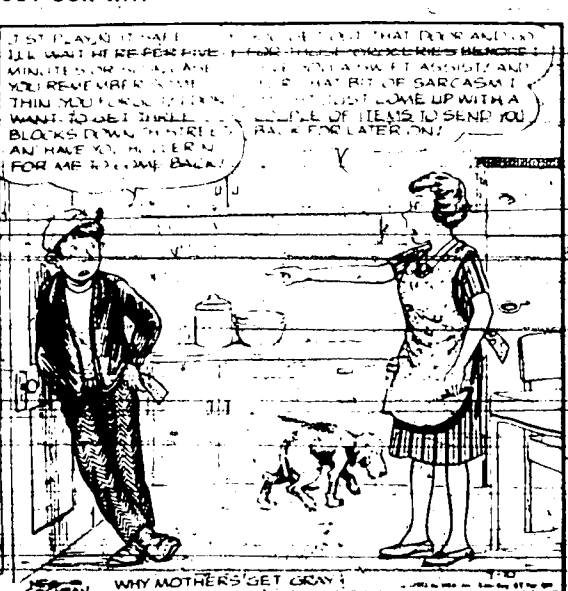 I'LL WAIT HERE FER FIVE
MINUTES OR SO IN CASE
YOU REMEMBER SOME
THIN' YOU FORGOT I DON'T
WANT TO GET THREE
BLOCKS DOWN TH' STREET
AN' HAVE YOU HOLLERIN'
FOR ME TO COME BACK!
GET OUT THAT DOOR AND GO
FOR THOSE GROCERIES BEFORE I
GIVE YOU A SWIFT ASSIST! AND
FOR THAT BIT OF SARCASM I
JUST COME UP WITH A
COUPLE OF ITEMS TO SEND YOU
BACK FOR LATER ON!
WHY MOTHERS GET GRAY!